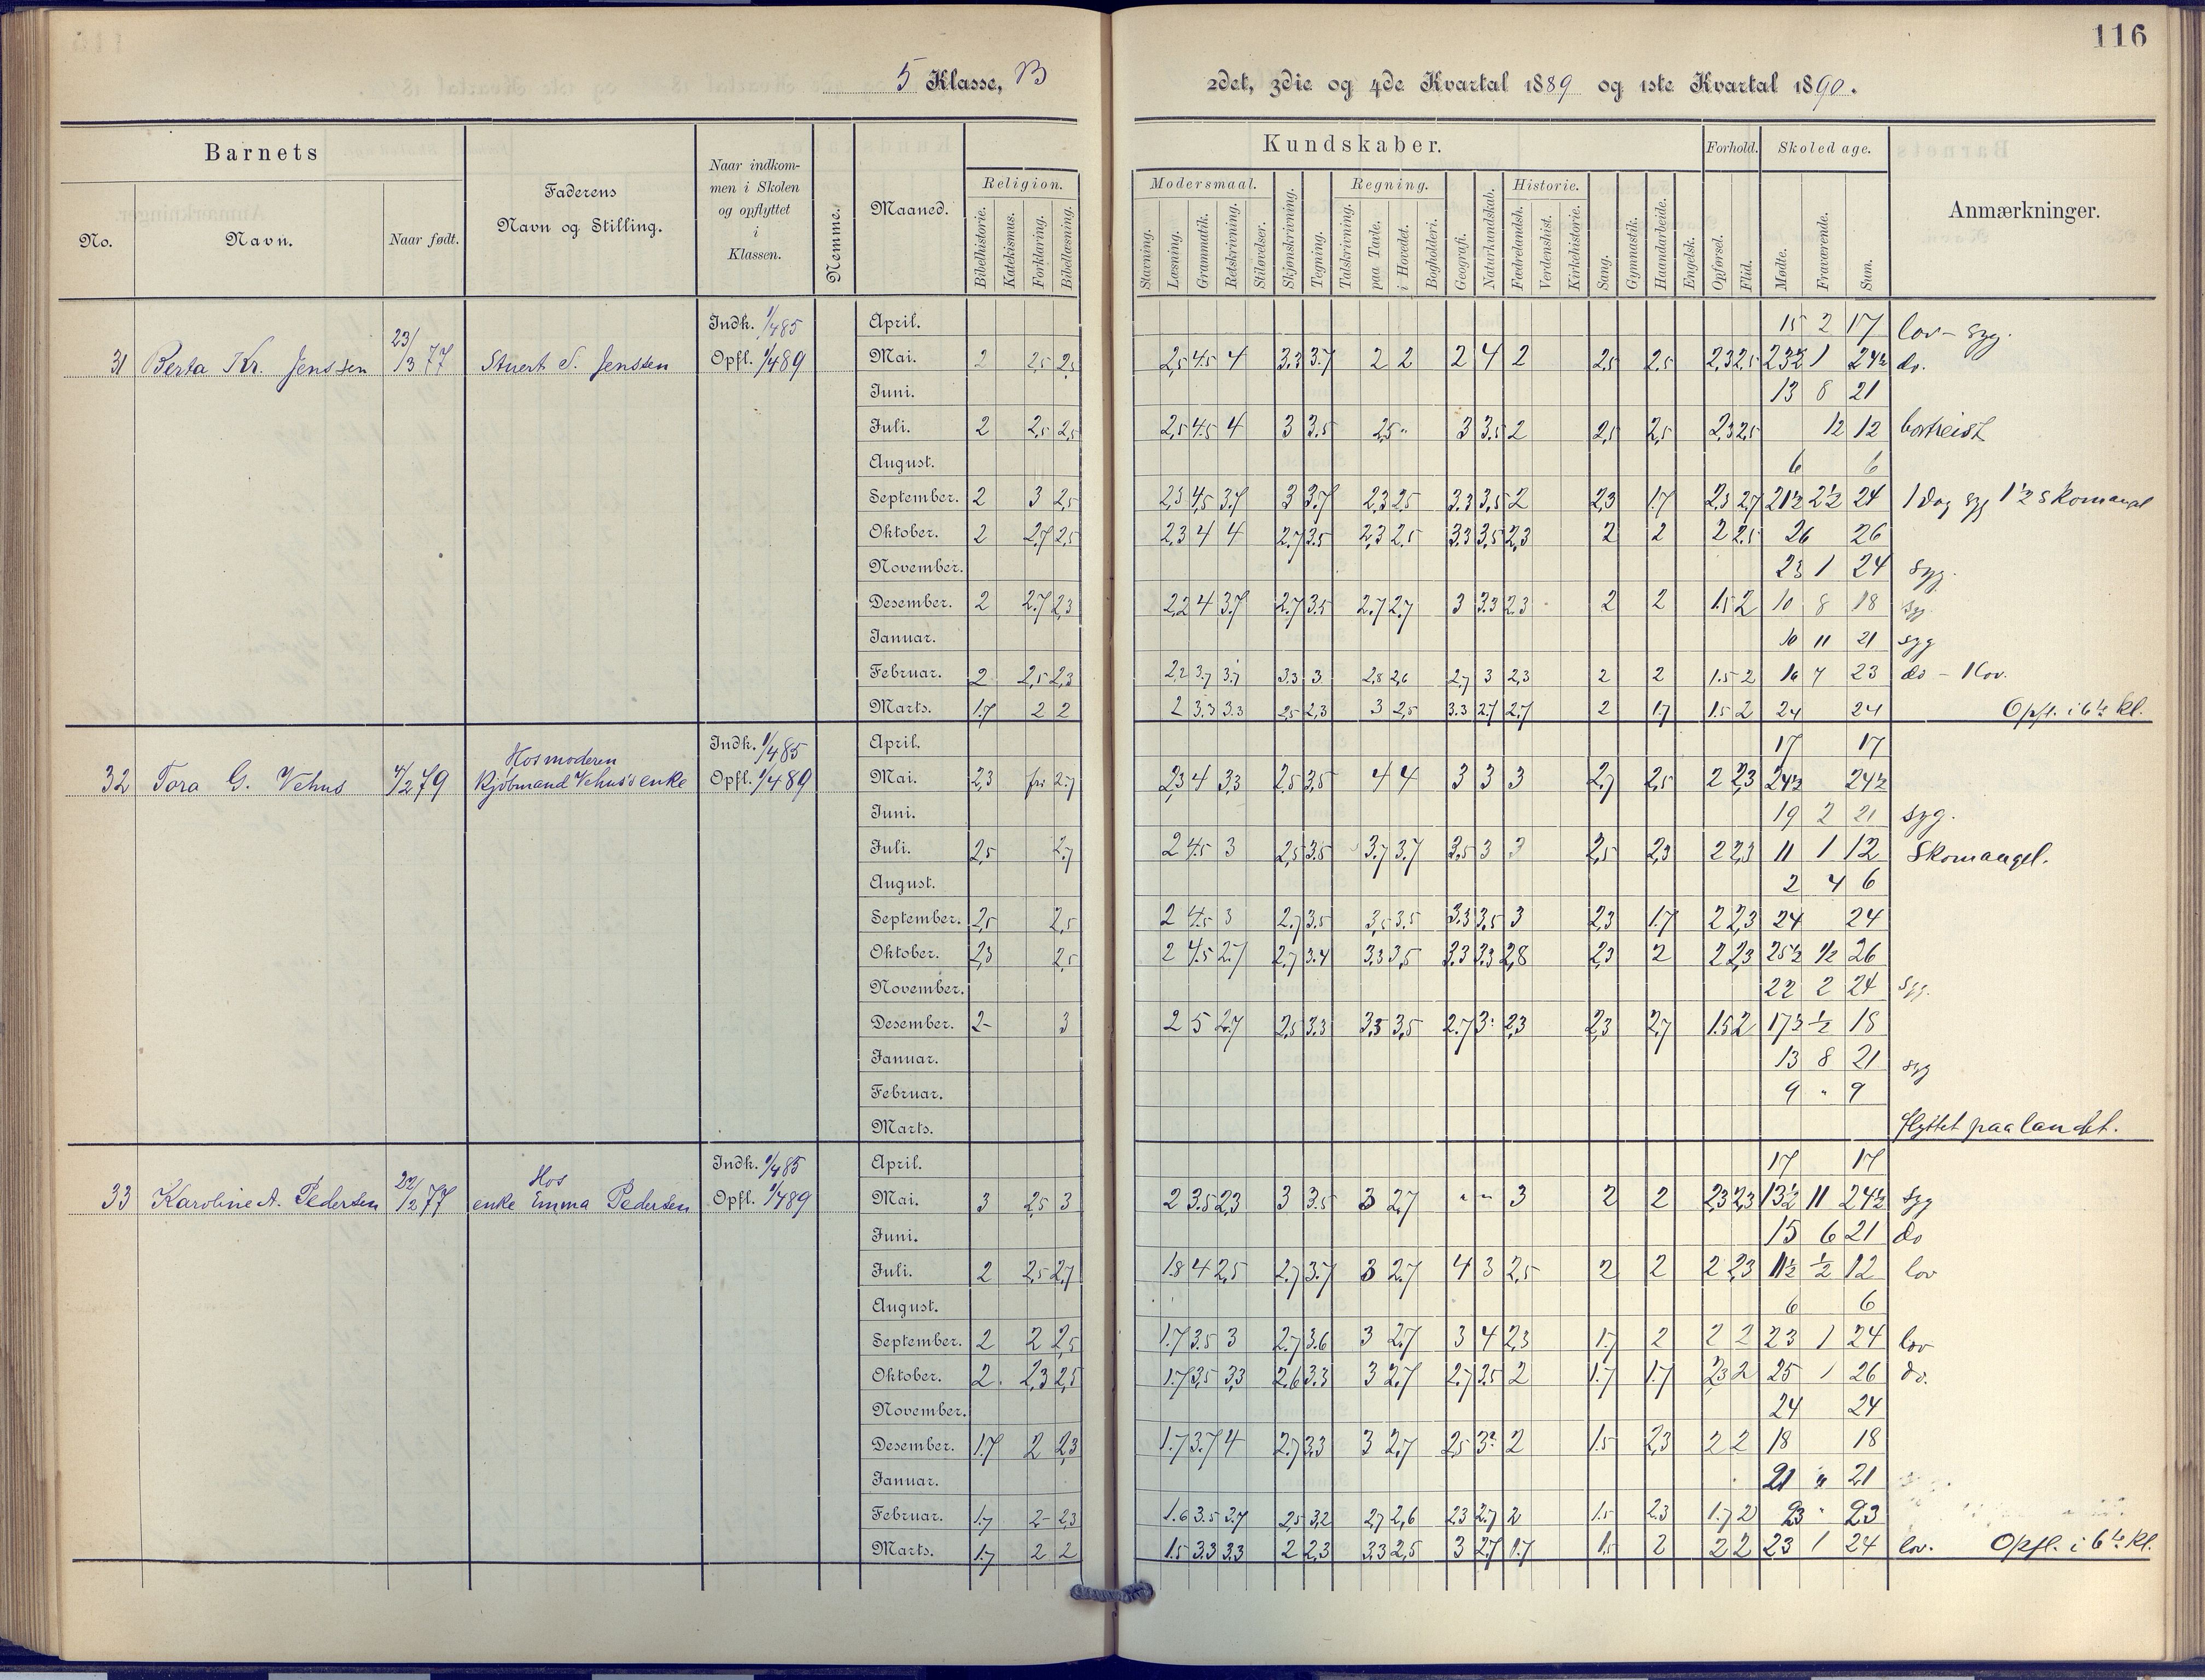 116
5 Klasse, B
2det, 3die og 4de Kvartal 1889 og 1ste Kvartal 1890.
Barnets
No.
Navn.
Naar født.
Faderens
Navn og Stilling.
Naar indkom-
men i Skolen
og opflyttet
i
Klassen.
Nemme.
Maaned.
Kundskaber.
Religion.
Bibelhistorie.
Katekismus.
Forklaring.
Bibellæsning.
Modersmaal.
Stavning.
Læsning.
Grammatik.
Retskrivning.
Stiløvelser.
Skjønskrivning.
Tegning.
Regning.
Talskrivning.
paa Tavle.
i Hovedet.
Bogholderi.
Geografi.
Naturkundskab.
Historie.
Fædrelandsh.
Verdenshist.
Kirkehistorie.
Sang.
Gymnastik.
Haandarbeide.
Engelsk.
Forhold.
Opførsel.
Flid.
Skoledage.
Mødte.
Fraværende.
Sum.
Anmærkninger.
31 Berta Kr. Jenssen 23/3 77 Stuert S. Jenssen Indk. 1/4 85 Opfl. 1/4 89
April. 15 2 17 lov - syg.
Mai. 2 2,5 2,5 2,5 4.5 4 3.3 3.7 2 2 2 4 2 2,5 2.5 2,3 2,5 23½ 1 24½ do.
Juni. 13 8 21
Juli. 2 2,5 2,5 2,5 4.5 4 3 3.5 2,5 " 3 3.5 2 2,5 2,5 2,3 2,5 12 12 bortreist
August. 6 6
September. 2 3 2,5 2,3 4,5 3.7 3 3.7 2,3 2.5 3.3 3,5 2 2,3 1.7 2,3 2.7 21½ 2½ 24 1 Dag syg 1½ skomangel
Oktober. 2 2,7 2,5 2.3 4 4 2.7 3.5 2,3 2.5 3.3 3,5 2,3 2 2 2 2.5 26 26
November. 23 1 24 syg.
Desember. 2 2.7 2,3 2,2 4 3.7 2.7 3.5 2.7 2.7 3 3.3 2.3 2 2 1.5 2 10 8 18 syg
Januar. 10 11 21 syg
Februar. 2 2,5 2,3 2,2 3.7 3.7 3.3 3 2,8 2,6 2,7 3 2,3 2 2 1.5 2 16 7 23 do - 1 lov.
Marts. 1.7 2 2 2 3.3 3.3 2,5 2,3 3 2,5 3.3 2.7 2.7 2 1.7 1.5 2 24 24 Opfl. i 6te kl.
32 Tora G. Vehus 4/2 79 Hos moderen
Kjøbmand Vehus's enke Indk. 1/4 85 Opfl. 1/4 89
April. 17 17
Mai. 2,3 fri 2.7 2,3 4 3,3 2.5 3,5 4 4 3 3 3 2,7 2,5 2 2,3 24½ 24½
Juni. 19 2 21 syg.
Juli. 2,5 2.7 2 4.5 3 2,5 3.5 3.7 3.7 3,5 3 3 2,5 2,3 2 2,3 11 1 12 Skomangel.
August. 2 4 6
September. 2,5 2,5 2 4.5 3 2.7 3.5 3,5 3.5 3.3 3,5 3 2,3 1.7 2 2,3 24 24
Oktober. 2,3 2,5 2 4.5 2.7 2,7 3.4 3.3 3,5 3.3 3.3 2,8 2,3 2 2 2,3 25½ ½ 26
November. 22 2 24 syg.
Desember. 2- 3 2 5 2.7 2,5 3.3 3,5 3,5 2.7 3 2,3 2,3 2,7 1.5 2 17½ ½ 18
Januar. 13 8 21 syg
Februar. 9 " 9
Marts. flyttet paa landet.
33 Karoline A. Pedersen 22/2 77 Hos
enke Emma Pedersen Indk. 1/4 85 Opfl. 1/4 89
April. 17 17
Mai. 3 2,5 3 2 3.5 2,3 3 3.5 3 2.7 " " 3 2 2 2,3 2,3 13½ 11 24½ syg
Juni. 15 6 21 do
Juli. 2 2,5 2,7 1.8 4 2,5 2.7 3.7 3 2.7 4 3 2,5 2 2 2 2,3 11½ ½ 12 lov
August. 6 6
September. 2 2 2,5 1.7 3.5 3 2.7 3.6 3 2,7 3 4 2,3 1.7 2 2 2 23 1 24 lov
Oktober. 2. 2,3 2,5 1.7 3,5 3,3 2.6 3.3 3 2.7 2.7 3.5 2 1.7 1.7 2,3 2 25 1 26 do.
November. 24 24
Desember. 1.7 2 2,3 1.7 3.7 4 2.7 3.3 3 2,7 2,5 3 2 1.5 2,3 2 2 18 18
Januar. 21 " 21
Februar. 1.7 2- 2,3 1.6 3.5 3.7 2,5 3,2 2,7 2,6 2,3 2.7 2 1.5 2.3 1.7 2 23 " 23
Marts. 1.7 2 2 1.5 3.3 3.3 2 2,3 3.3 2,5 3 2.7 1.7 1.5 2 2 2 23 1 24 lov. Opfl. i 6te kl.